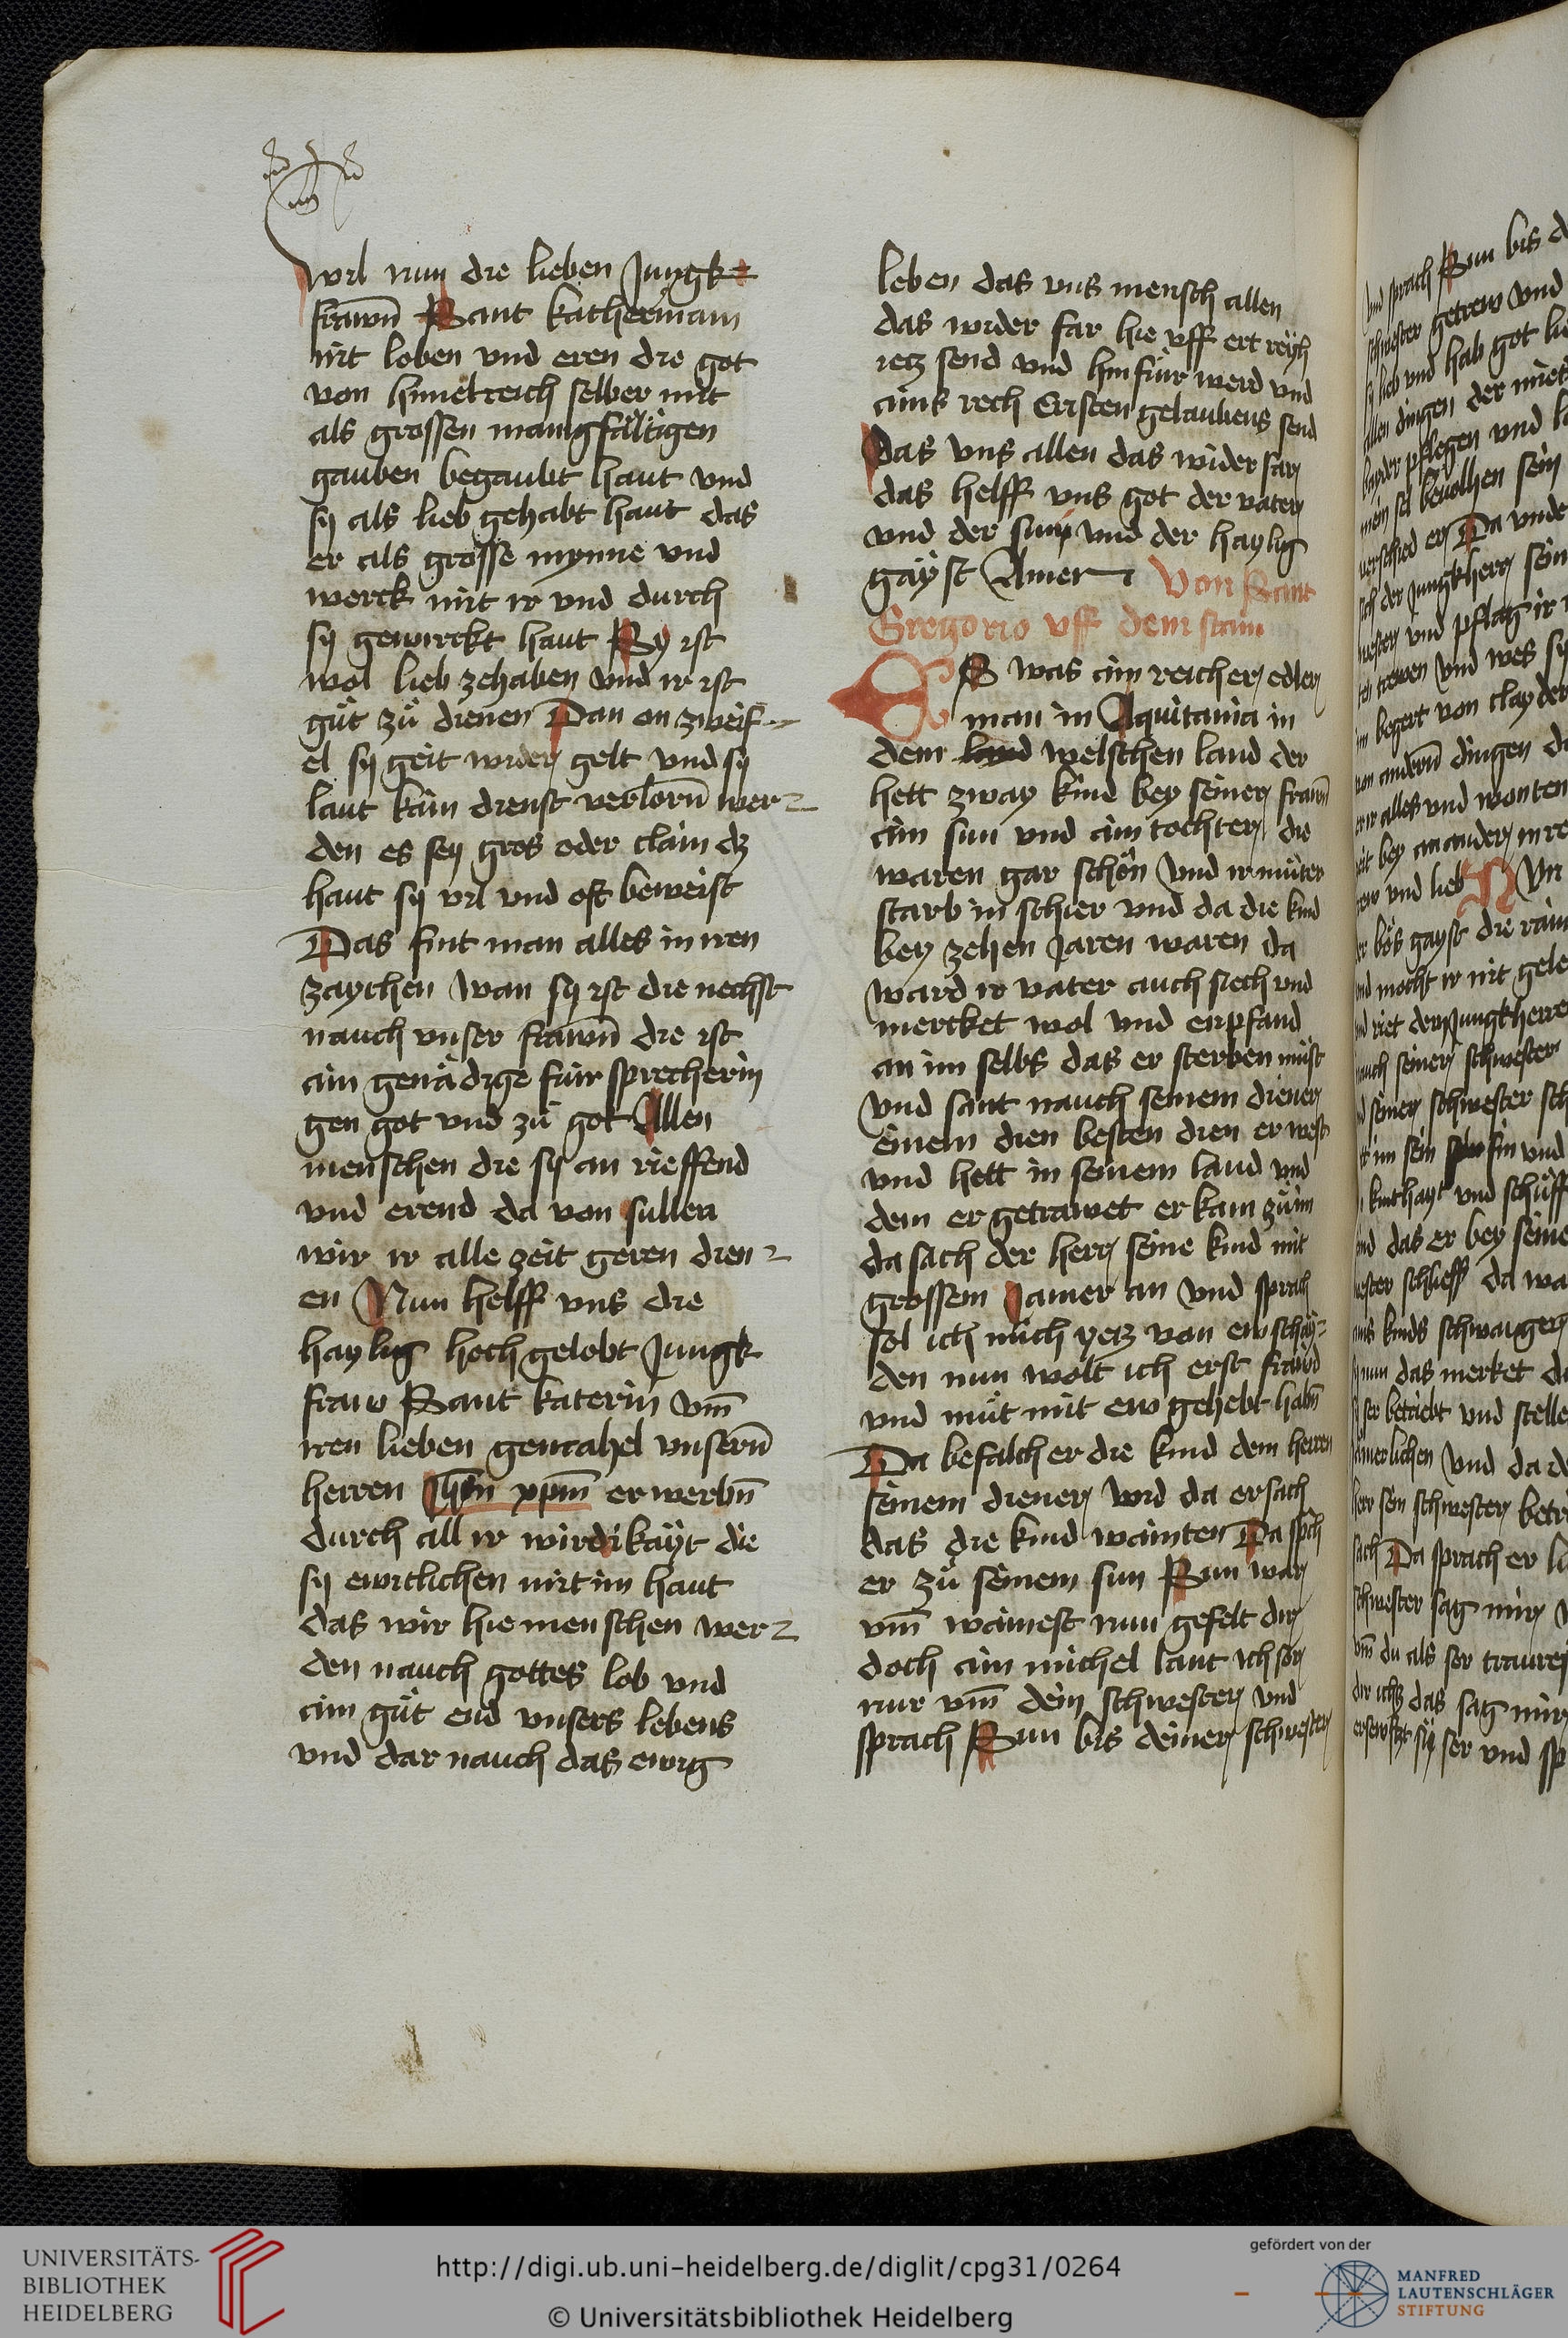 wil nun die lieben Jungk
frawn̄ Sant katherinam
nit loben vnd eren die got
von himelreich selber mit
als grossen manigfältigen
gauben begaubt haut vnd
sy als lieb gehabt haut das
er als grosse mynne vnd
werck mit ir vnd durch
sy gewirckt haut Sy ist
wol lieb zehaben vnd ir ist
gůt zů dienen Dan on zweif-
el sy geit wider gelt vnd sy
laut kain dienst verlorn̄ wer-
den es sey gros oder clain dz
haut sy vil vnd oft beweist
Das fint man alles in iren
zaychen wan sy ist die nechst
nauch vnser frawn̄ die ist
ain genädige für sprecherin
gen got vnd zů got Allen
menschen die sy an rieffend
vnd erend da von sullen
wir ir alle zeit geren dien-
en Nun helff vns die
haylig hochgelobt Jungk
fraw Sant katerin vm̄
iren lieben gemahel vnsern̄
herren Jhm̄ xpm̄ erwerbn̄
durch all ir wirdikäyt die
sy ewiclichen mit im haut
das wir hie menschen wer-
den nauch gottes lob vnd
ain gůt end vnsers lebens
vnd dar nauch das ewig
leben das vns mensch allen
das wider far hie vff ert reych
ietz send vnd hinfür werd vnd
ains rech Cristen gelaubens send
Das vns allen das wider far
das helff vns got der vater
vnd der sun vnd der haylig
gäyst Amen Von Sant
Gregorio vff dem stain
ES was ain reicher edler
man in Aquitania in
dem land welschen land der
hett zway kind bey seiner frawn̄
ain sun vnd ain tochter die
waren gar schön vnd ir můter
starb in schier vnd da die kind
bey zehen Jaren waren da
ward ir vater auch siech vnd
mercket wol vnd enpfand
an im selbs das er sterben můst
vnd sant nauch seinem diener
einem dien besten dien er west
vnd hett in seinem land vnd
dem er getrawet er kam zů im
da sach der herr seine kind mit
grossem Jamer an vnd sprach
sol ich mich yetz von ew schay-
den nun wolt ich erst fräwd
vnd můt mit ew gehebt habn̄
Da befalch er die kind dem herren
seinem diener vnd da er sach
das die kind wainten Da sp̄ch
er zů seinem sun Sun war
vm̄ wainest nun gefelt dir
doch ain michel laut ich sorg
nur vm̄ dein schwester vnd
sprach Sun bis deiner schwester
vnd sprach Sun bis
schwester getrew vnd
lieb vnd hab got
allen dingen der
pflegen vnd
mein sel beuolhen sein
verschied er Da
sich der Jungkherr
vnd pflag ir
trewen vnd wes sy
begert von clayder
von andern̄ dingen
alles vnd wonten
bey an ander
vnd lieb NVn
bös gayst die
mocht ir nit
riet dem Jungkherre
nauch seiner schwester
seiner schwester
im sein sin vnd
kinthayt vnd schůff
das er bey seine
schlieff da
kinds schwanger
nun das merket
ser betrübt vnd
vnd da
herr sein schwester
sach Da sprach er
schwester sag mir
vm̄ du als ser
das sag mir
ser vnd
UNIVERSITÄTS-
BIBLIOTHEK
HEIDELBERG
http://digi.ub.uni-heidelberg.de/diglit/cpg31/0264
© Universitätsbibliothek Heidelberg
gefördert von der
MANFRED
LAUTENSCHLÄGER
STIFTUNG